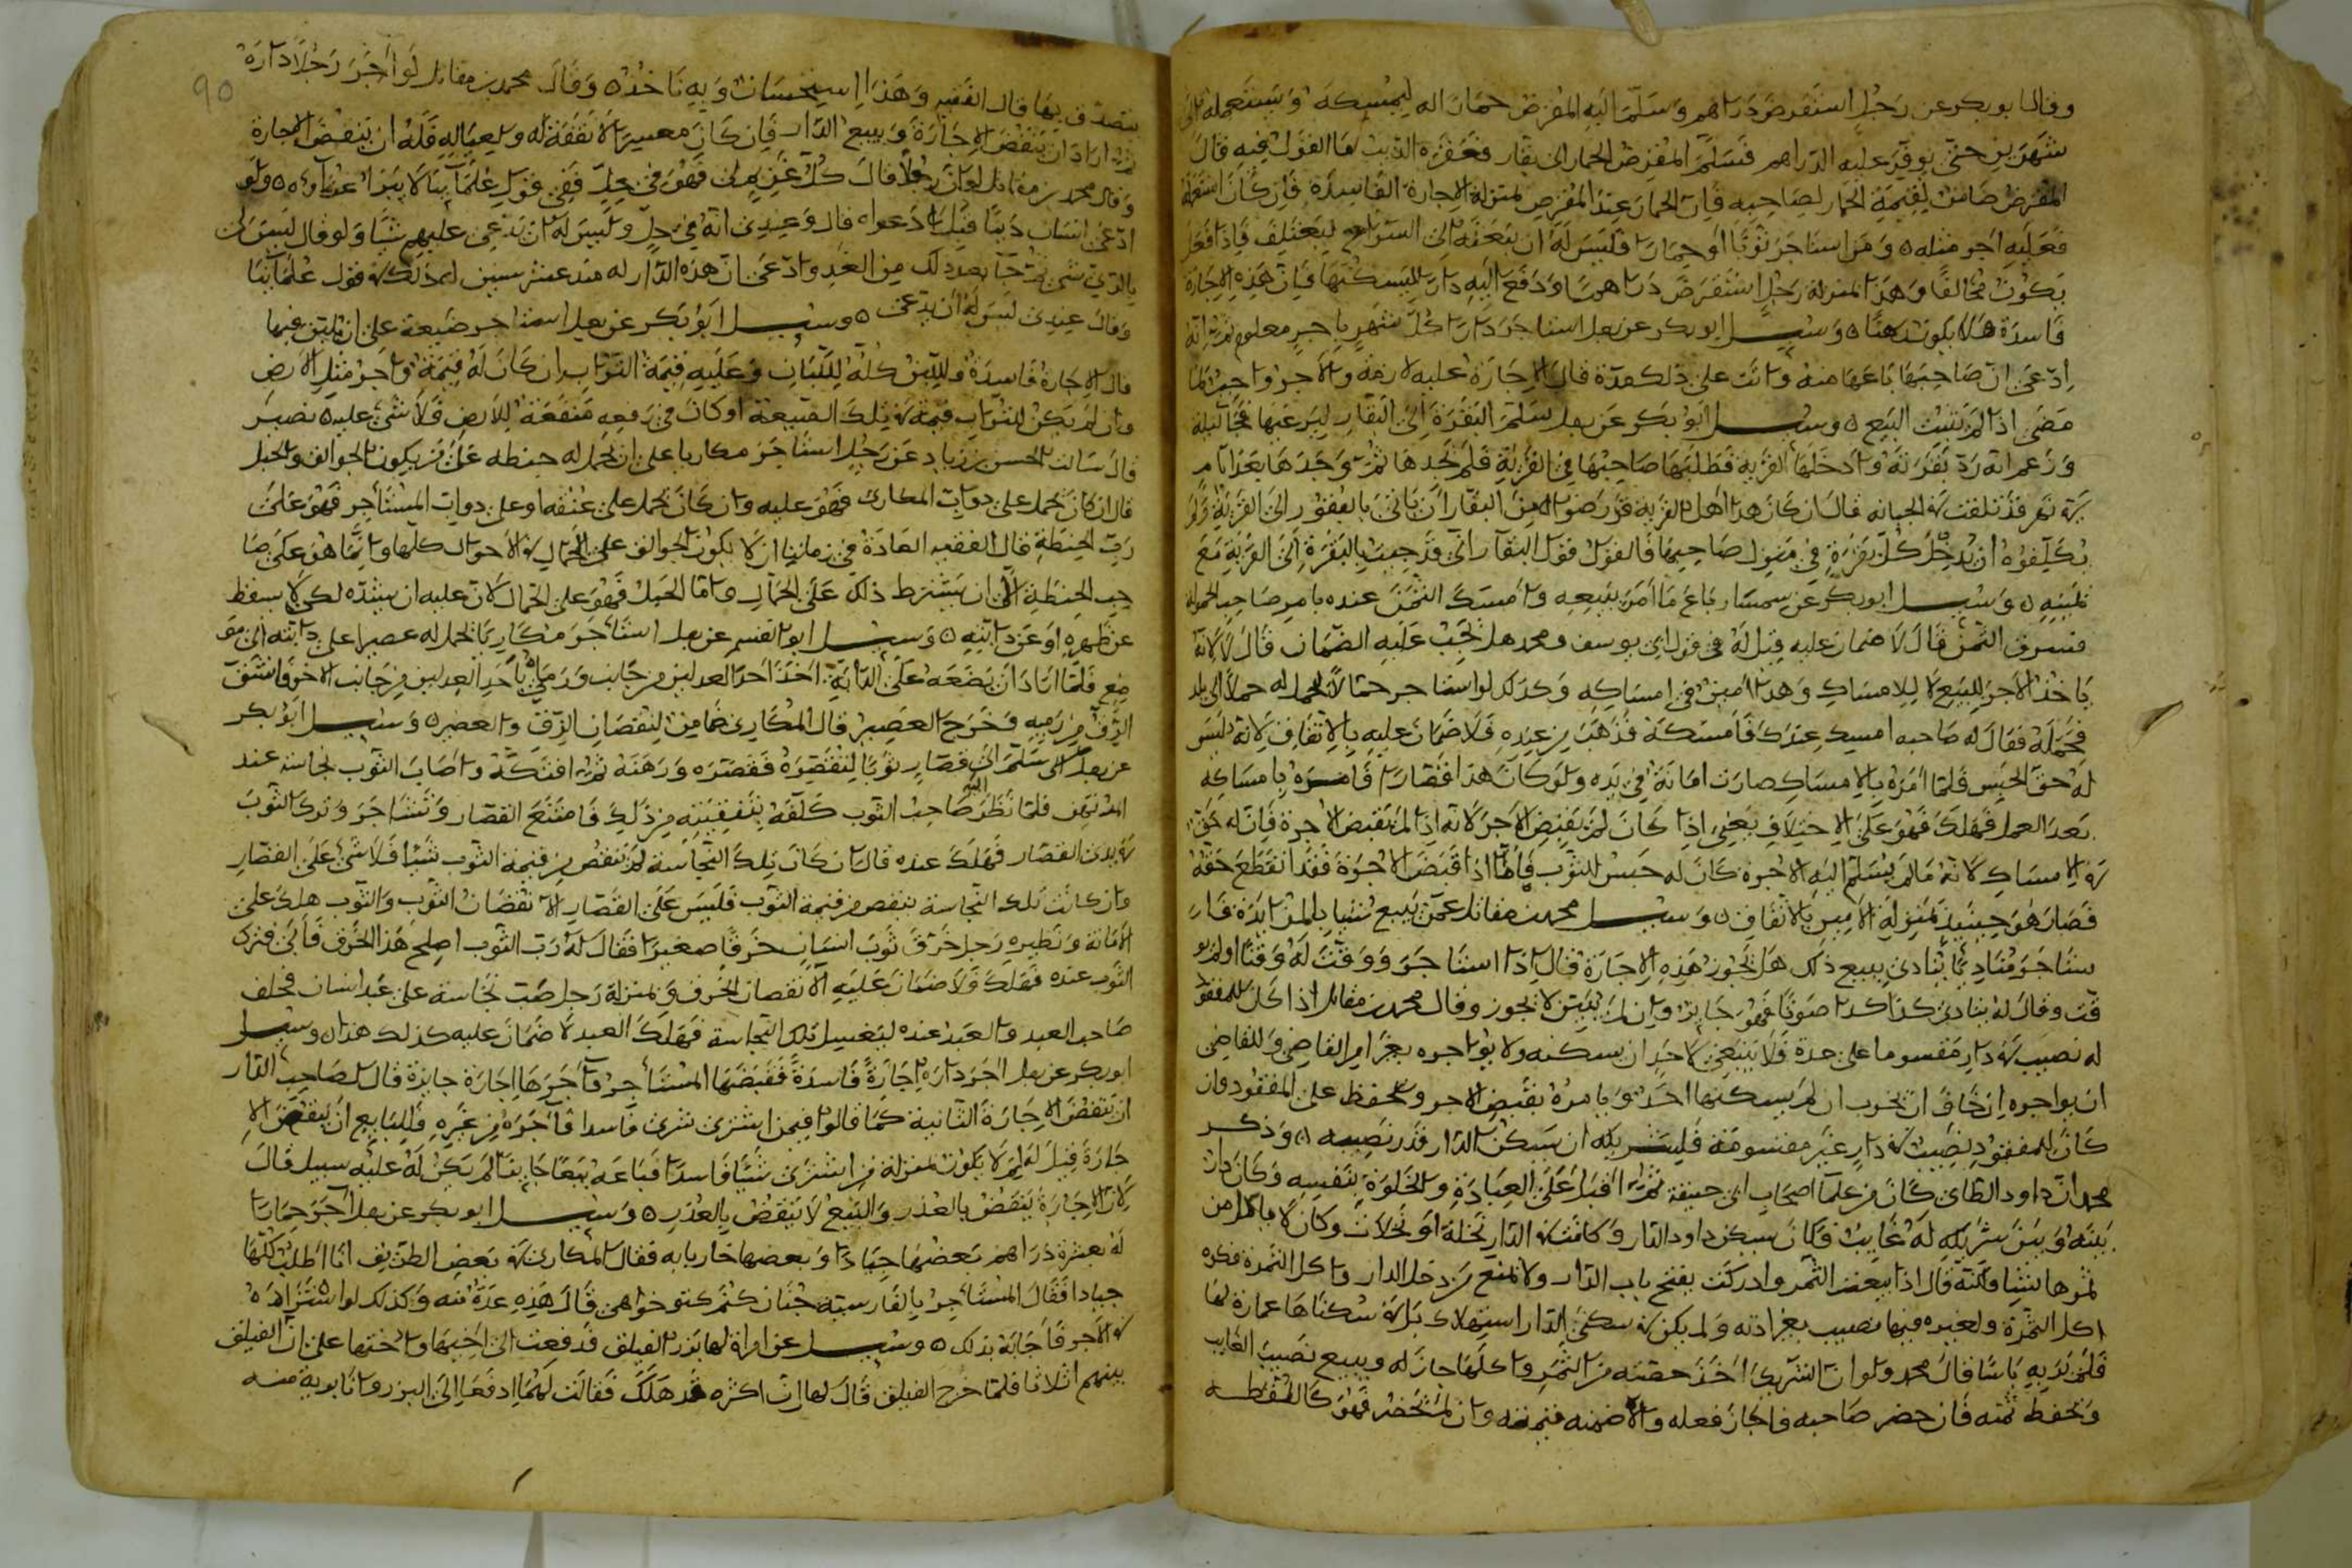 وقال ابو بكر عن رجل استقرض دراهم وسلم اليه المقرض حمارا له ليمسكه ويستعمله الى
شهرين حتى يوفر عليه الدراهم فسلم المقرض الحمار الى بقار فعقره الذيب ما القول فيه قال
المقرض ضامن لقيمة الحمار لصاحبه فان الحمار عند المقرض بمنزلة الاجارة الفاسدة فان كان استعمله
فعليه اجر مثله ومن استاجر ثورا او حمارا فليس له ان يبعثه الى السراح ليعتلف فاذا فعل
يكون مخالفا وهذا بمنزلة رجل استقرض دراهم وسا ودفع اليه دارا ليسكنها فان هذه الاجارة
فاسدة هذا لا يكون رهنا وسيل ابو بكر عن رجل استاجر دارا كل شهر باجر معلوم ثم انه
ادعى ان صاحبها باعها منه وانت على ذلك مدة قال الاجارة عليه لازمة والاجر واجب لما
مضى اذا لم يثبت البيع وسيل ابو بكر عن رجل سلم البقرة الى البقار ليرعيها فجا ليلة
وزعم انه رد بقرته وادخلها القرية فطلبها صاحبها في القرية فلم يجدها ثم وجدها بعد ايام
في نهر قد تلفت في الجبانه قال ان كان هذا اهل القرية قد رضوا من البقار ان ياتي بالبقور الى القرية ولم
يكلفوه ان يدخل كل بقرة في منزل صاحبها فالقول قول البقار اني قد جيت بالبقرة الى القرية مع
يمينه وسيل ابو بكر عن سمسار باع ما امر ببيعه وامسك الثمن عنده بامر صاحب الحمولة
فسرق الثمن قال لا ضمان عليه قيل له في قول ابي يوسف ومحمد هل يجب عليه الضمان قال لا لانه
ياخذ الاجر للبيع لا للامساك وهذا امين في امساكه وكذلك لو استاجر حمالا ليحمل له حملا الى بلد
فحمله فقال له صاحبه امسك عندك فامسكه فذهب من عنده فلا ضمان عليه بالاتفاق لانه ليس
له حق الحبس فلما امره بالامساك صارت امانة في يده ولو كان هذا قصارا فامره بامساكه
بعد العمل فهلك فهو على الاختلاف يعني اذا كان لم يقبض الاجر لانه اذا لم يقبض الاجرة فان له حق
في الامساك لانه ما لم يسلم اليه الاجرة كان له حبس الثوب فاما اذا قبض الاجرة فقد انقطع حقه
فصار هو حينيذ بمنزلة الامين بالاتفاق وسيل محمد بن مقاتل عمن يبيع شيا بالمزايدة فار
ستاجر مناديا ينادي ببيع ذلك هل يجوز هذه الاجارة قال اذا استاجر ووقت له وقتا او لم يو
قت وقال له ينادي كذا كذا صوتا فهو جايز وان لم يبين لا يجوز وقال محمد بن مقاتل اذا كان للمفقود
له نصيب في دار مقسوما على حدة فلا ينبغي لاحد ان يسكنه ولا يواجره بغير امر القاضي وللقاضي
ان يواجره ان خاف ان يخرب ان لم يسكنها احد ويامره بقبض الاجر ويحفظ على المفقود وان
كان للمفقود نصيب في دار غير مقسومة فلشريكه ان يسكن الدار قدر نصيبه وذكر
محمد ان داود الطائ كان من علما اصحاب ابي حنيفة ثم اقبل على العبادة والخلوة بنفسه وكان دار
بينه وبين شريكه له غايب فكان يسكن داود الدار وكانت في الدار نخلة او نخلات وكان لا ياكل من
ثمرها شيا ولكنه قال اذا ينعت الثمر وادركت يفتح باب الدار ولا يمنع من دخل الدار واكل الثمرة فكره
اكل الثمرة ولغيره فيها نصيب بغير اذنه ولم يكن في سكنى الدار استهلاك بل في سكناها عمارة لها
فلم ير به باسا قال محمد ولو ان الشريك اخذ حصته من الثمر واكلها جاز له ويبيع نصيب الغايب
ويحفظ ثمنه فان حضر صاحبه فاجاز فعله والا ضمنه قيمته وان لم يحضر فهو كاللقطه
90
يتصدق بها قال الفقيه وهذا استحسان وبه ناخذ وقال محمد بن مقاتل لو اجر رجلا داره
ثم اراد ان ينقض الاجارة ويبيع الدار فان كان معسرا لا نفقة له ولعياله فله ان ينقض الاجارة
وقال محمد بن مقاتل لو ان رجلا قال كل غريم لي فهو في حل ففي قول علماينا لا يبرا غرماوه ولو
ادعى انسان دينا قبل ادعواه قال وعندي انه في حل وليس له ان يدعي عليهم شيا ولو قال ليس لي
بالري شي ثم جا بعد ذلك من الغد وادعى ان هذه الدار له منذ عشر سنين له ذلك في قول علماينا
وقال عندي ليس له ان يدعى وسيل ابو بكر عن رجل استاجر ضيعة على ان يلبن فيها
قال الاجارة فاسدة واللبن كله للبان وعليه قيمة التراب ان كان له قيمة واجر مثل الارض
وان لم يكن للتراب قيمة في تلك الضيعة او كان في رفعه منفعة للارض فلا شي عليه نصير
قال سالت الحسن بن زياد عن رجل استاجر مكاريا على ان يحمل له حنطه على من يكون الجوالق والحبل
قال ان كان يحمل على دواب المكاري فهو عليه وان كان يحمل على عنقه او على دواب المستاجر فهو على
رب الحنطة قال الفقيه العادة في زماننا ان لا يكون الجوالق على الحمال في الاحوال كلها وانما هو على صا
حب الحنطة الا ان يشترط ذلك على الحمال واما الحبل فهو على الحمال لان عليه ان يشده لكي لا يسقط
عن ظهره او عن دابته وسيل ابو القسم عن رجل استاجر مكاريا يحمل له عصيرا على دابته الى مو
ضع فلما اراد ان يضعه على الدابة اخذ احد العدلين من جانب ورمى باحد العدلين من جانب الاخر فانشق
الزق من رميه وخرج العصير قال المكاري ضامن لنقصان الزق والعصير وسيل ابو بكر
عن رجل سلم الى قصار ثوبا ليقصره فقصره ورهنه ثم افتكه واصاب الثوب نجاسة عند
المرتهن فلما نظر اليه صاحب الثوب كلفه بتنقيته من ذلك فامتنع القصار وتشاجر وترك الثوب
لا يدى القصار فهلك عنده قال ان كان تلك النجاسة لم تنقص من قيمة الثوب شيا فلا شي على القصار
وان كانت تلك النجاسة تنقص من قيمة الثوب فليس على القصار الا نقصان الثوب والثوب هلك على
الامانة ونظيره رجل خرق ثوب انسان خرقا صغيرا فقال له رب الثوب اصلح هذا الخرق فابى فترك
الثوب عنده فهلك فلا ضمان عليه الا نقصان الخرق وبمنزلة رجل صب نجاسة على عبد انسان فحلف
صاحب العبد والعبد عنده ليغسل تلك النجاسة فهلك العبد لا ضمان عليه كذلك هذا وسيل
ابو بكر عن رجل اجر داره اجارة فاسدة فقبضها المستاجر واجرها اجارة جايزة قال لصاحب الدار
ان ينقض الاجارة الثانية كما قالوا فيمن اشترى شرى فاسدا فاجره من غيره فللبايع ان ينقض الا
جارة قيل له لم لا يكون بمنزلة من اشترى شيا فاسدا فباعه بيعا جايزا لم يكن له عليه سبيل قال
لان الاجارة ينقض بالعذر والبيع لا ينقض بالعذر وسيل ابو بكر عن رجل اجر حمارا
له بعشرة دراهم بعضها جيادا وبعضها خاربابه فقال المكاري في بعض الطريق انا اطلب كلها
جيادا فقال المستاجر بالفارسية جنان كنم كتو خواهي قال هذه عدة منه وكذلك لو استزاده
في الاجر فاجابه بذلك وسيل عن امراة لها بذر الفيلق فدفعت الى اخيها واختها على ان الفيلق
بينهم اثلاثا فلما خرج الفيلق قال لها ان اكثره قد هلك فقالت لهما ادفعا الى البزر وانا برية منه